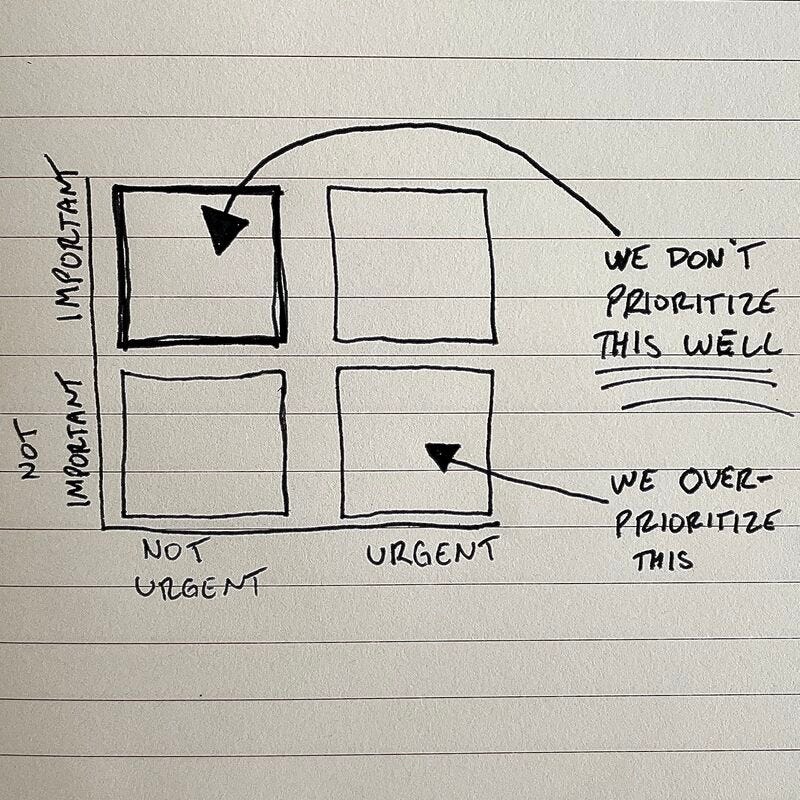 IMPORTANT
NOT
IMPORTANT
NOT
URGENT
URGENT
WE DON'T
PRIORITIZE
THIS WELL
WE OVER-
PRIORITIZE
THIS